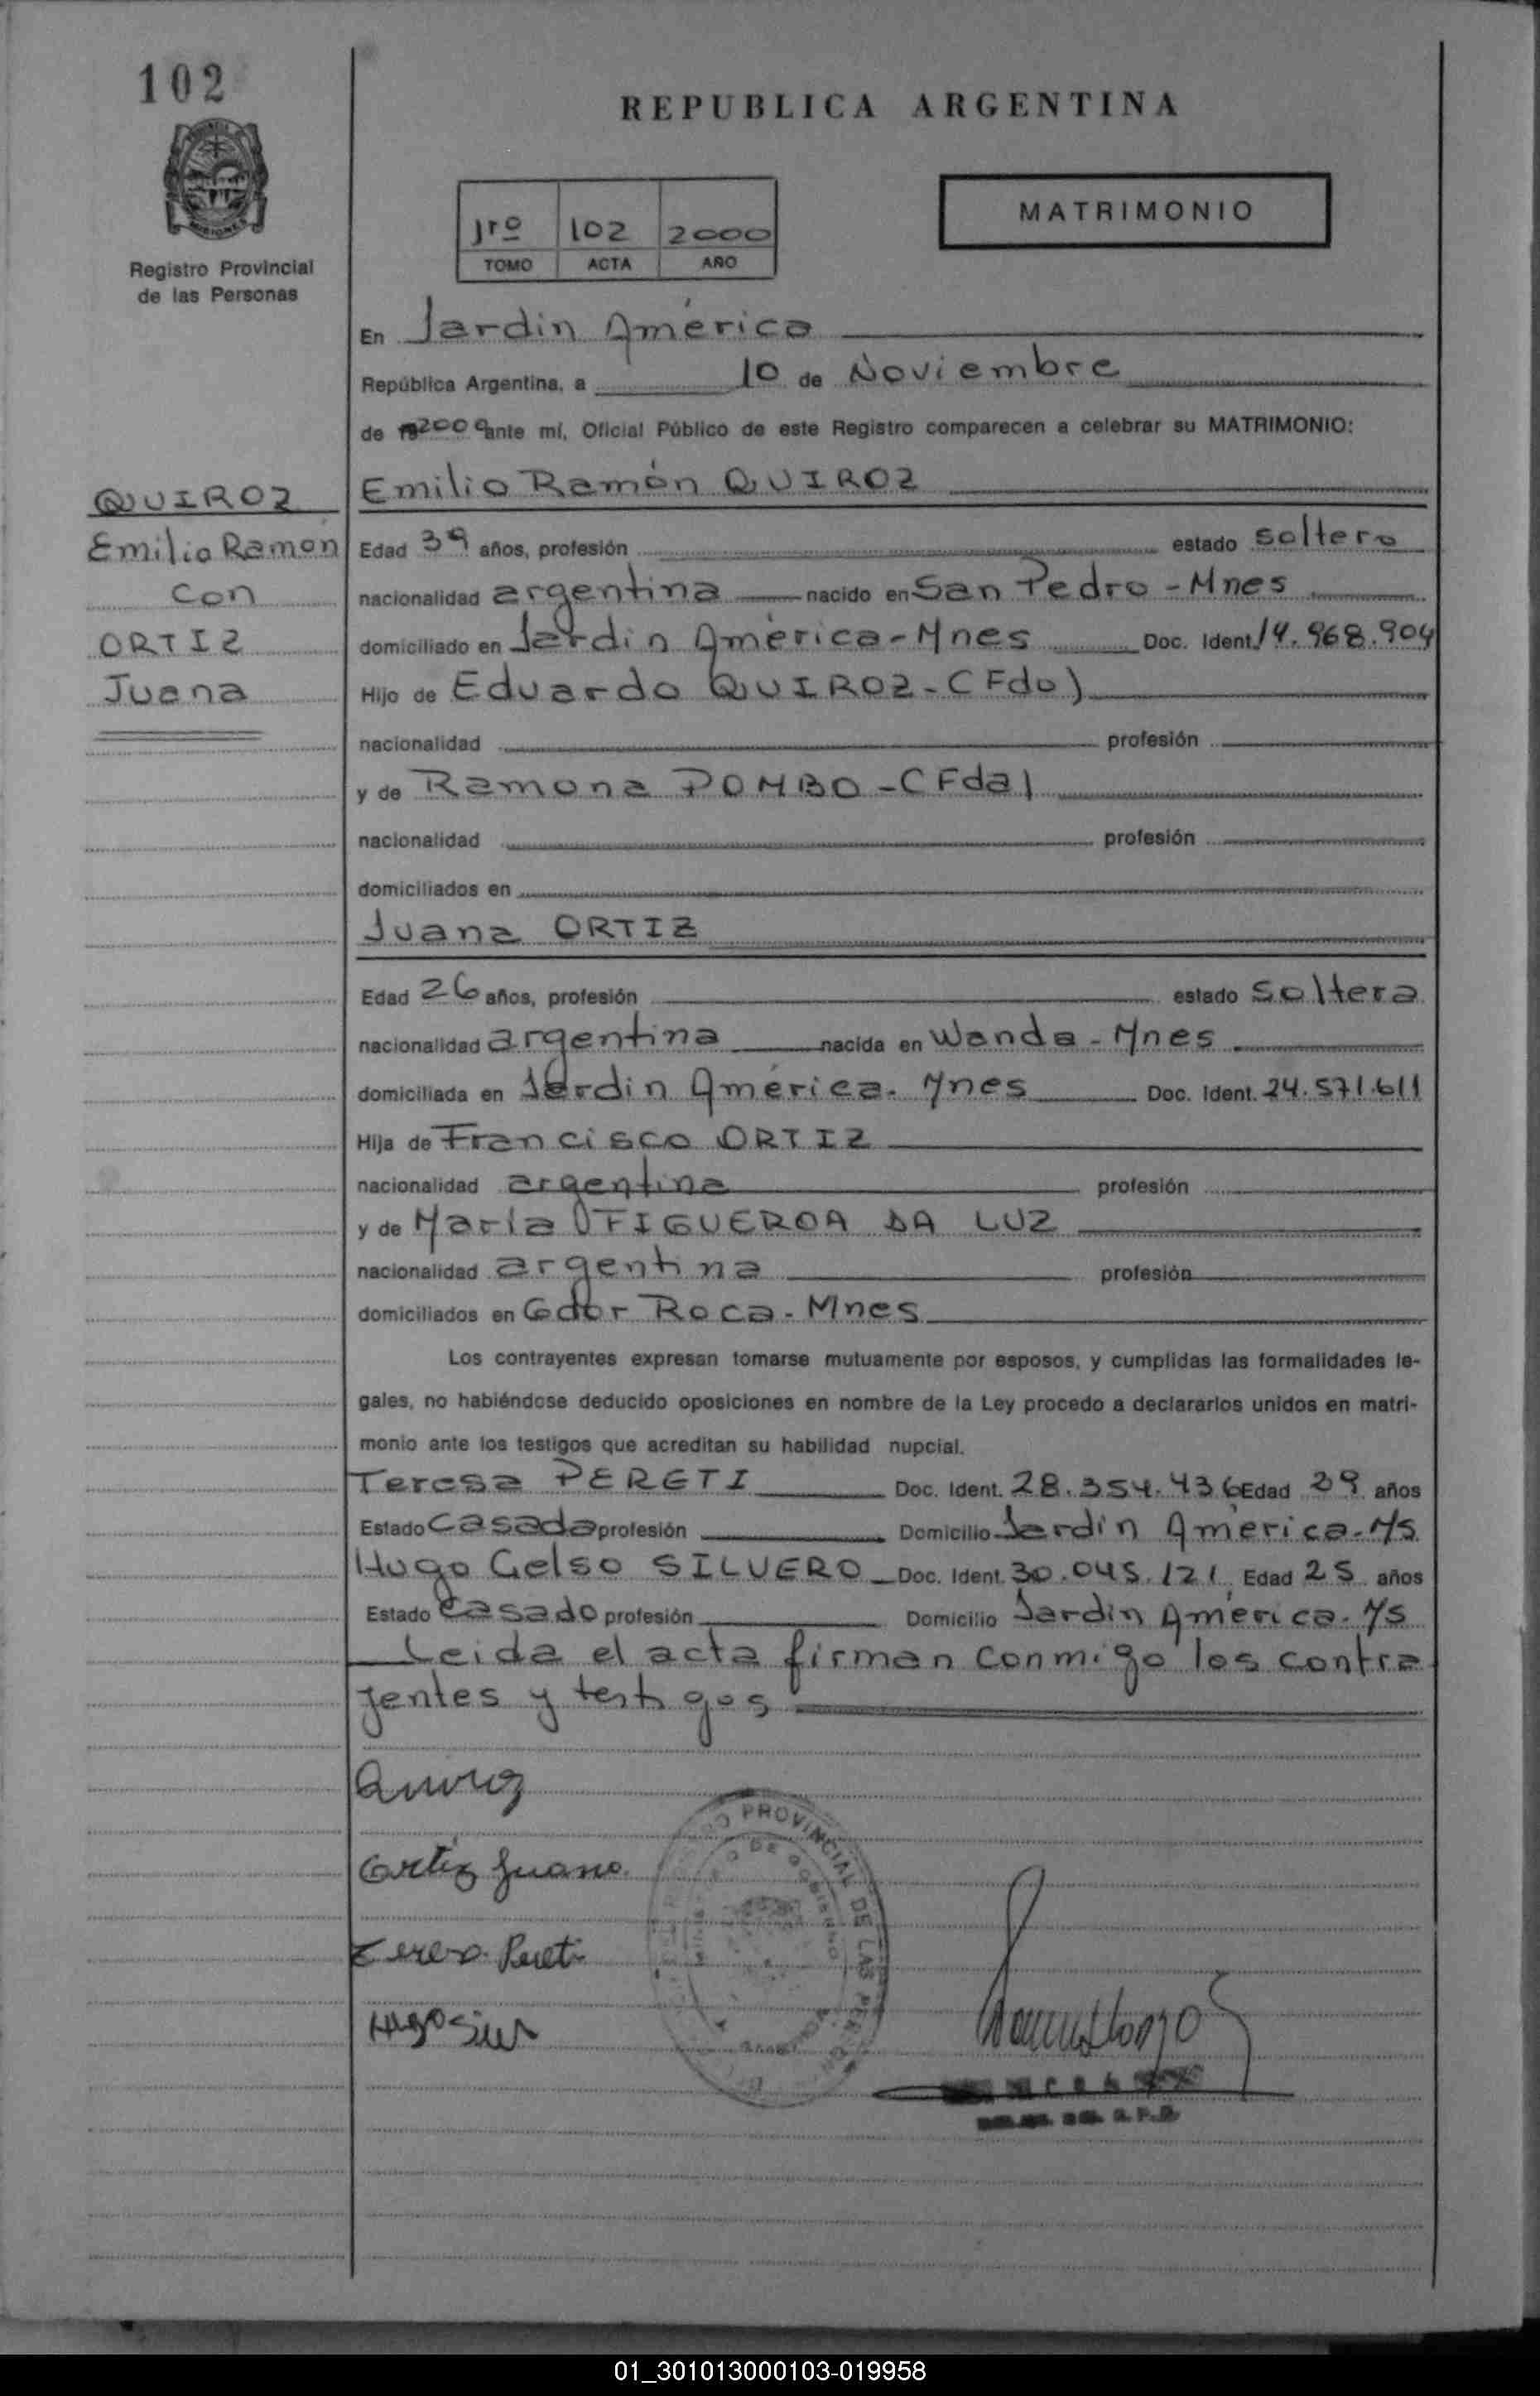 102
REPUBLICA ARGENTINA
MATRIMONIO
1rº 102 2000
TOMO ACTA AÑO
Registro Provincial
de las Personas
En Jardin América
República Argentina, a 10 de Noviembre
de 2000 ante mí, Oficial Público de este Registro comparecen a celebrar su MATRIMONIO:
QUIROZ
Emilio Ramón
con
ORTIZ
Juana
Emilio Ramón QUIROZ
Edad 39 años, profesión estado soltero
nacionalidad argentina nacido en San Pedro - Mnes
domiciliado en Jardin América - Mnes Doc. Ident. 14.968.904
Hijo de Eduardo QUIROZ - (Fdo)
nacionalidad profesión
y de Ramona POMBO - (Fda)
nacionalidad profesión
domiciliados en
Juana ORTIZ
Edad 26 años, profesión estado soltera
nacionalidad argentina nacida en Wanda - Mnes
domiciliada en Jardin América - Mnes Doc. Ident. 24.571.611
Hija de Francisco ORTIZ
nacionalidad argentina profesión
y de María FIGUEROA DA LUZ
nacionalidad argentina profesión
domiciliados en Gdor Roca - Mnes
Los contrayentes expresan tomarse mutuamente por esposos, y cumplidas las formalidades le-
gales, no habiéndose deducido oposiciones en nombre de la Ley procedo a declararlos unidos en matri-
monio ante los testigos que acreditan su habilidad nupcial.
Teresa PERETI Doc. Ident. 28.354.436 Edad 29 años
Estado casada profesión Domicilio Jardin América - Ms
Hugo Celso SILVERO Doc. Ident. 30.045.121 Edad 25 años
Estado Casado profesión Domicilio Jardin América - Ms
Leida el acta firman conmigo los contra
yentes y testigos
Quiroz
Ortiz Juana
Teresa Pereti
Hugo Silv
PROVINCIAL DE LAS PER
DE GOBIERNO
01_301013000103-019958